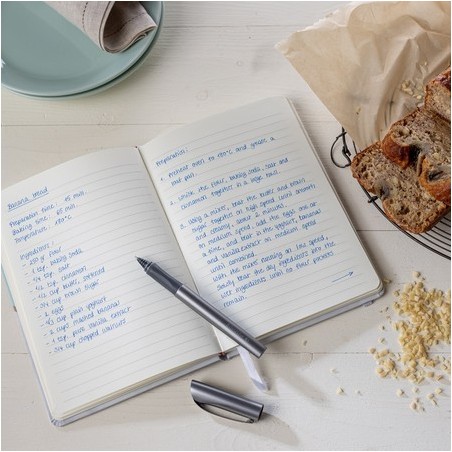 Banana bread
Preparation time: 15 min.
Baking time: 65 min.
Temperature: 180°C
Ingredients:
- 250 g flour
- 1 tsp. baking soda
- 1/4 tsp. salt
- 1/2 tsp. cinnamon
- 1/2 cup butter, softened
- 3/4 cup brown sugar
- 2 eggs
- 1/3 cup plain yoghurt
- 2 cups mashed bananas
- 1 tsp. pure vanilla extract
- 3/4 cup chopped walnuts
Preparation:
1. Preheat oven to 180°C and grease a
loaf pan.
2. Whisk the flour, baking soda, salt and
cinnamon together in a large bowl.
3. Using a mixer, beat the butter and brown
sugar together on high speed until smooth
and creamy, about 2 minutes.
On medium speed, add the eggs one at
a time, and beat in the yoghurt, bananas
and vanilla extract on medium speed
until combined.
With the mixer running on low speed,
slowly beat the dry ingredients into the
wet ingredients until no flour pockets
remain.